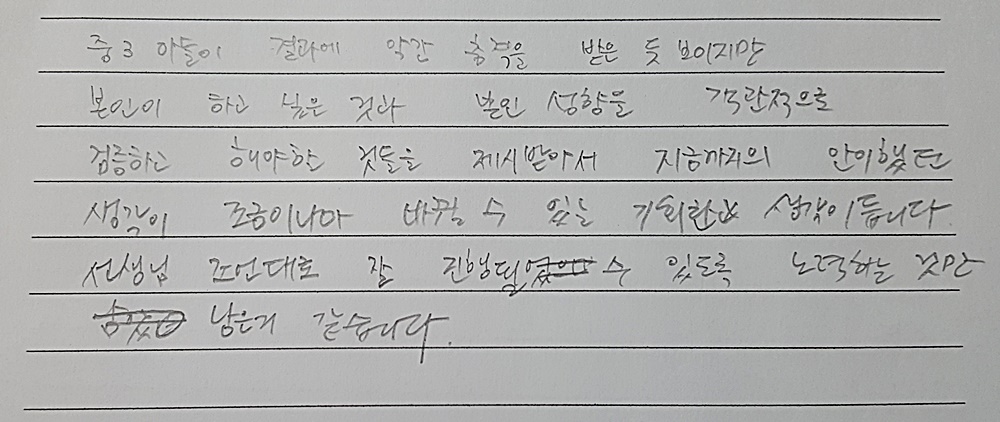 중3 아들이 결과에 약간 충격을 받은 듯 보이지만
본인이 하고 싶은 것과 본인 성향을 객관적으로
검증하고 해야한 것들을 제시받아서 지금까지의 안이했던
생각이 조금이나마 바뀔 수 있는 기회란 생각이 듭니다
선생님 조언대로 잘 진행될 수 있도록 노력하는 것만
남은거 같습니다.